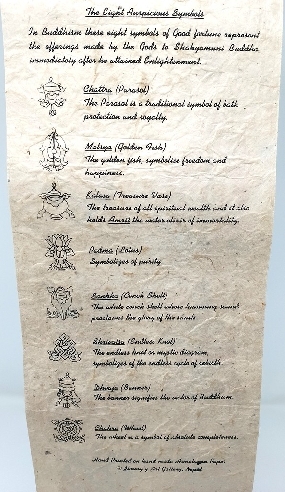 The Eight Auspicious Symbols
In Buddhism these eight symbols of Good fortune represent
the offerings made by the Gods to Shakyamuni Buddha
immediately after he attained Enlightenment.
Chattra (Parasol)
The Parasol is a traditional symbol of both
protection and royalty.
Matsya (Golden Fish)
The golden fish, symbolise freedom and
happiness.
Kalasa (Treasure Vase)
The treasure of all spiritual wealth and it also
holds Amrit the water elixir of immortality.
Padma (Lotus)
Symbolizes of purity
Sankha (Conch Shell)
The white conch shell whose sound
proclaims the glory of the saints
(Endless Knot)
The endless knot or mystic diagram,
symbolizes of the endless cycle of rebirth.
Dhvaja (Banner)
The banner signifies the victor of Buddhism.
(Wheel)
The wheel is a symbol of absolute completeness.
Hand Printed on hand made Himalayan Paper
Art Gallery, Nepal